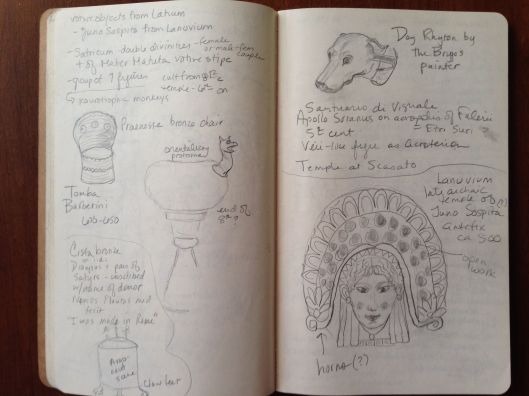 votive objects from Latium
- Juno Sospita from Lanuvium
- Satricum - double divinities - female
or male-fem
couples
+ of Mater Matuta votive stipe
- group of 7 figures
cult from
temple - 6th on
monkeys
Praeneste bronze chair
orientalizing
protome
Tomba
Barberini
end of
8th?
Cista bronze
Dionysos + pair of
Satyrs - inscribed
w/name of donor
Novios Plautios med
fecit
"I was made in Rome"
Argo-
naut
scene
claw feet
Dog Rhyton by
the Brygos
painter
Santuario di Vignale
Apollo Soranus on acropolis of Falerii
5th cent
= Etr. Suri
Veii-like figure as Acroterion
Temple at Scasato
Lanuvium
late archaic
temple of (?)
Juno Sospita
antefix
ca 500
open
work
horns (?)